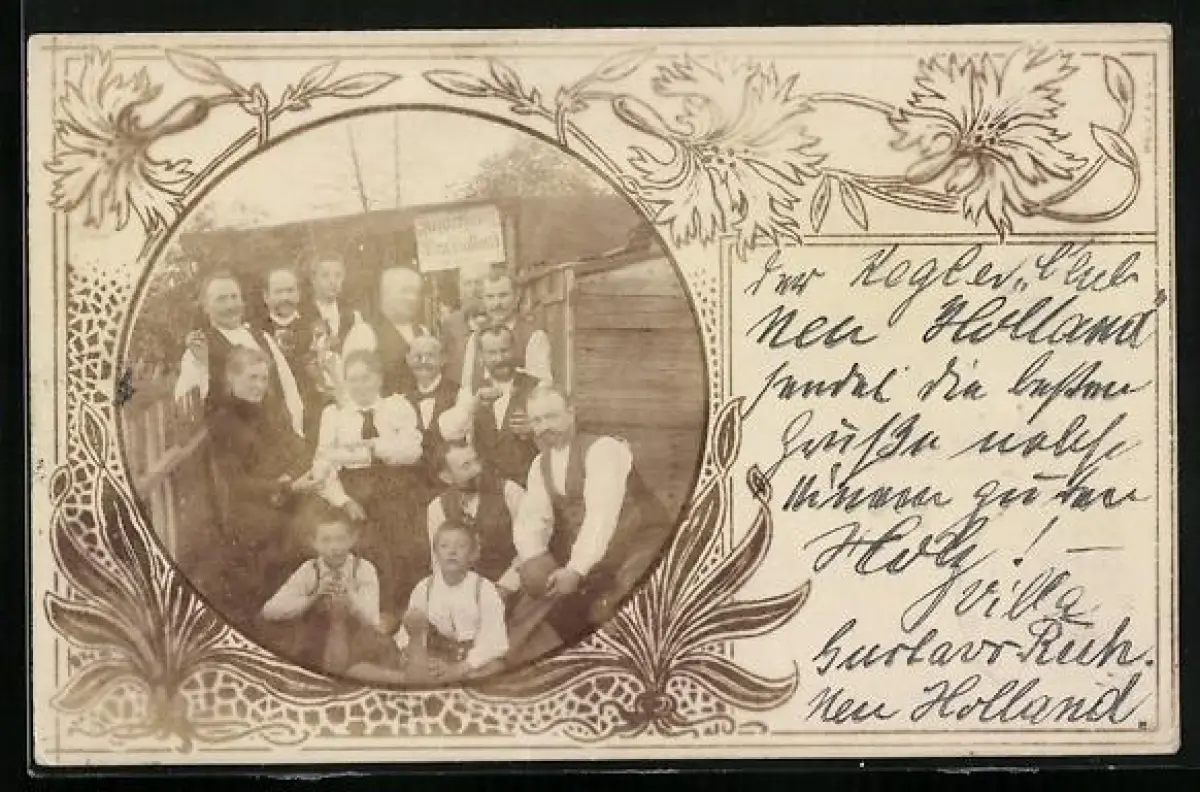 Der Kegler „Club
Neu Holland“
sendet die besten
Grüße nebst
einem guten
Holz! —
Villa
Gustavs Ruh.
Neu Holland.